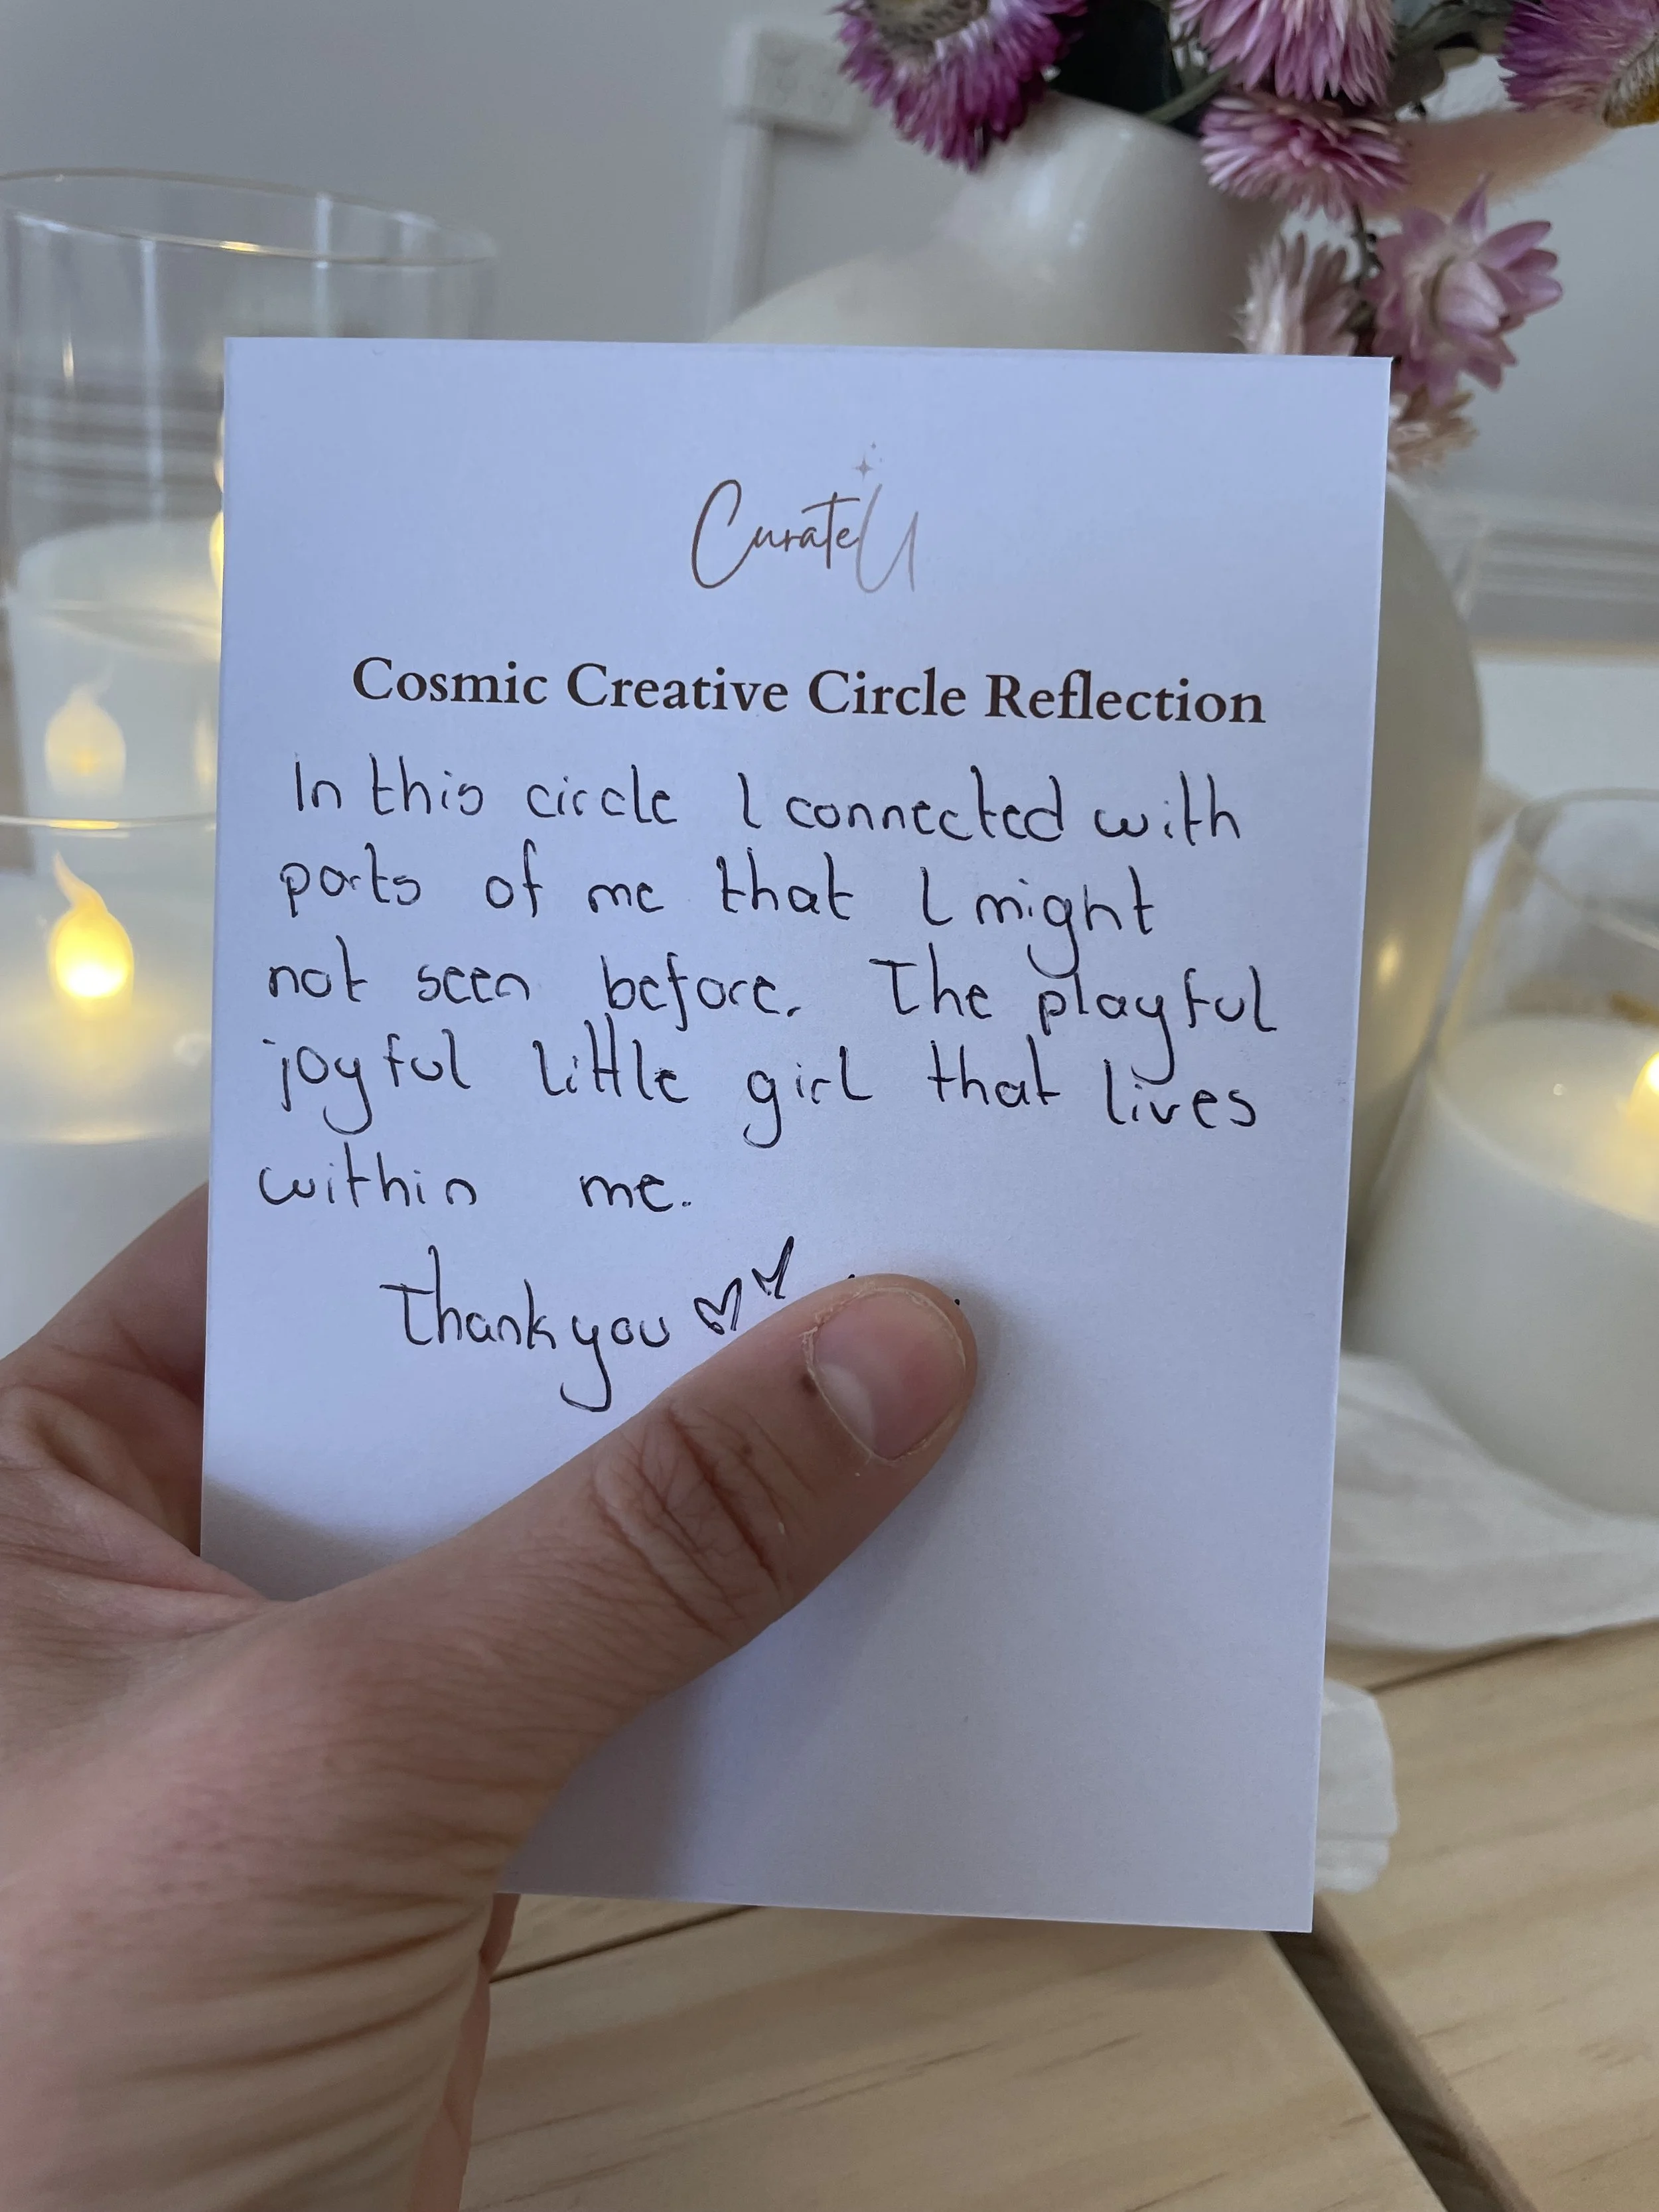 CurateU
Cosmic Creative Circle Reflection
In this circle I connected with
parts of me that I might
not seen before. The playful
joyful little girl that lives
within me.
Thank you